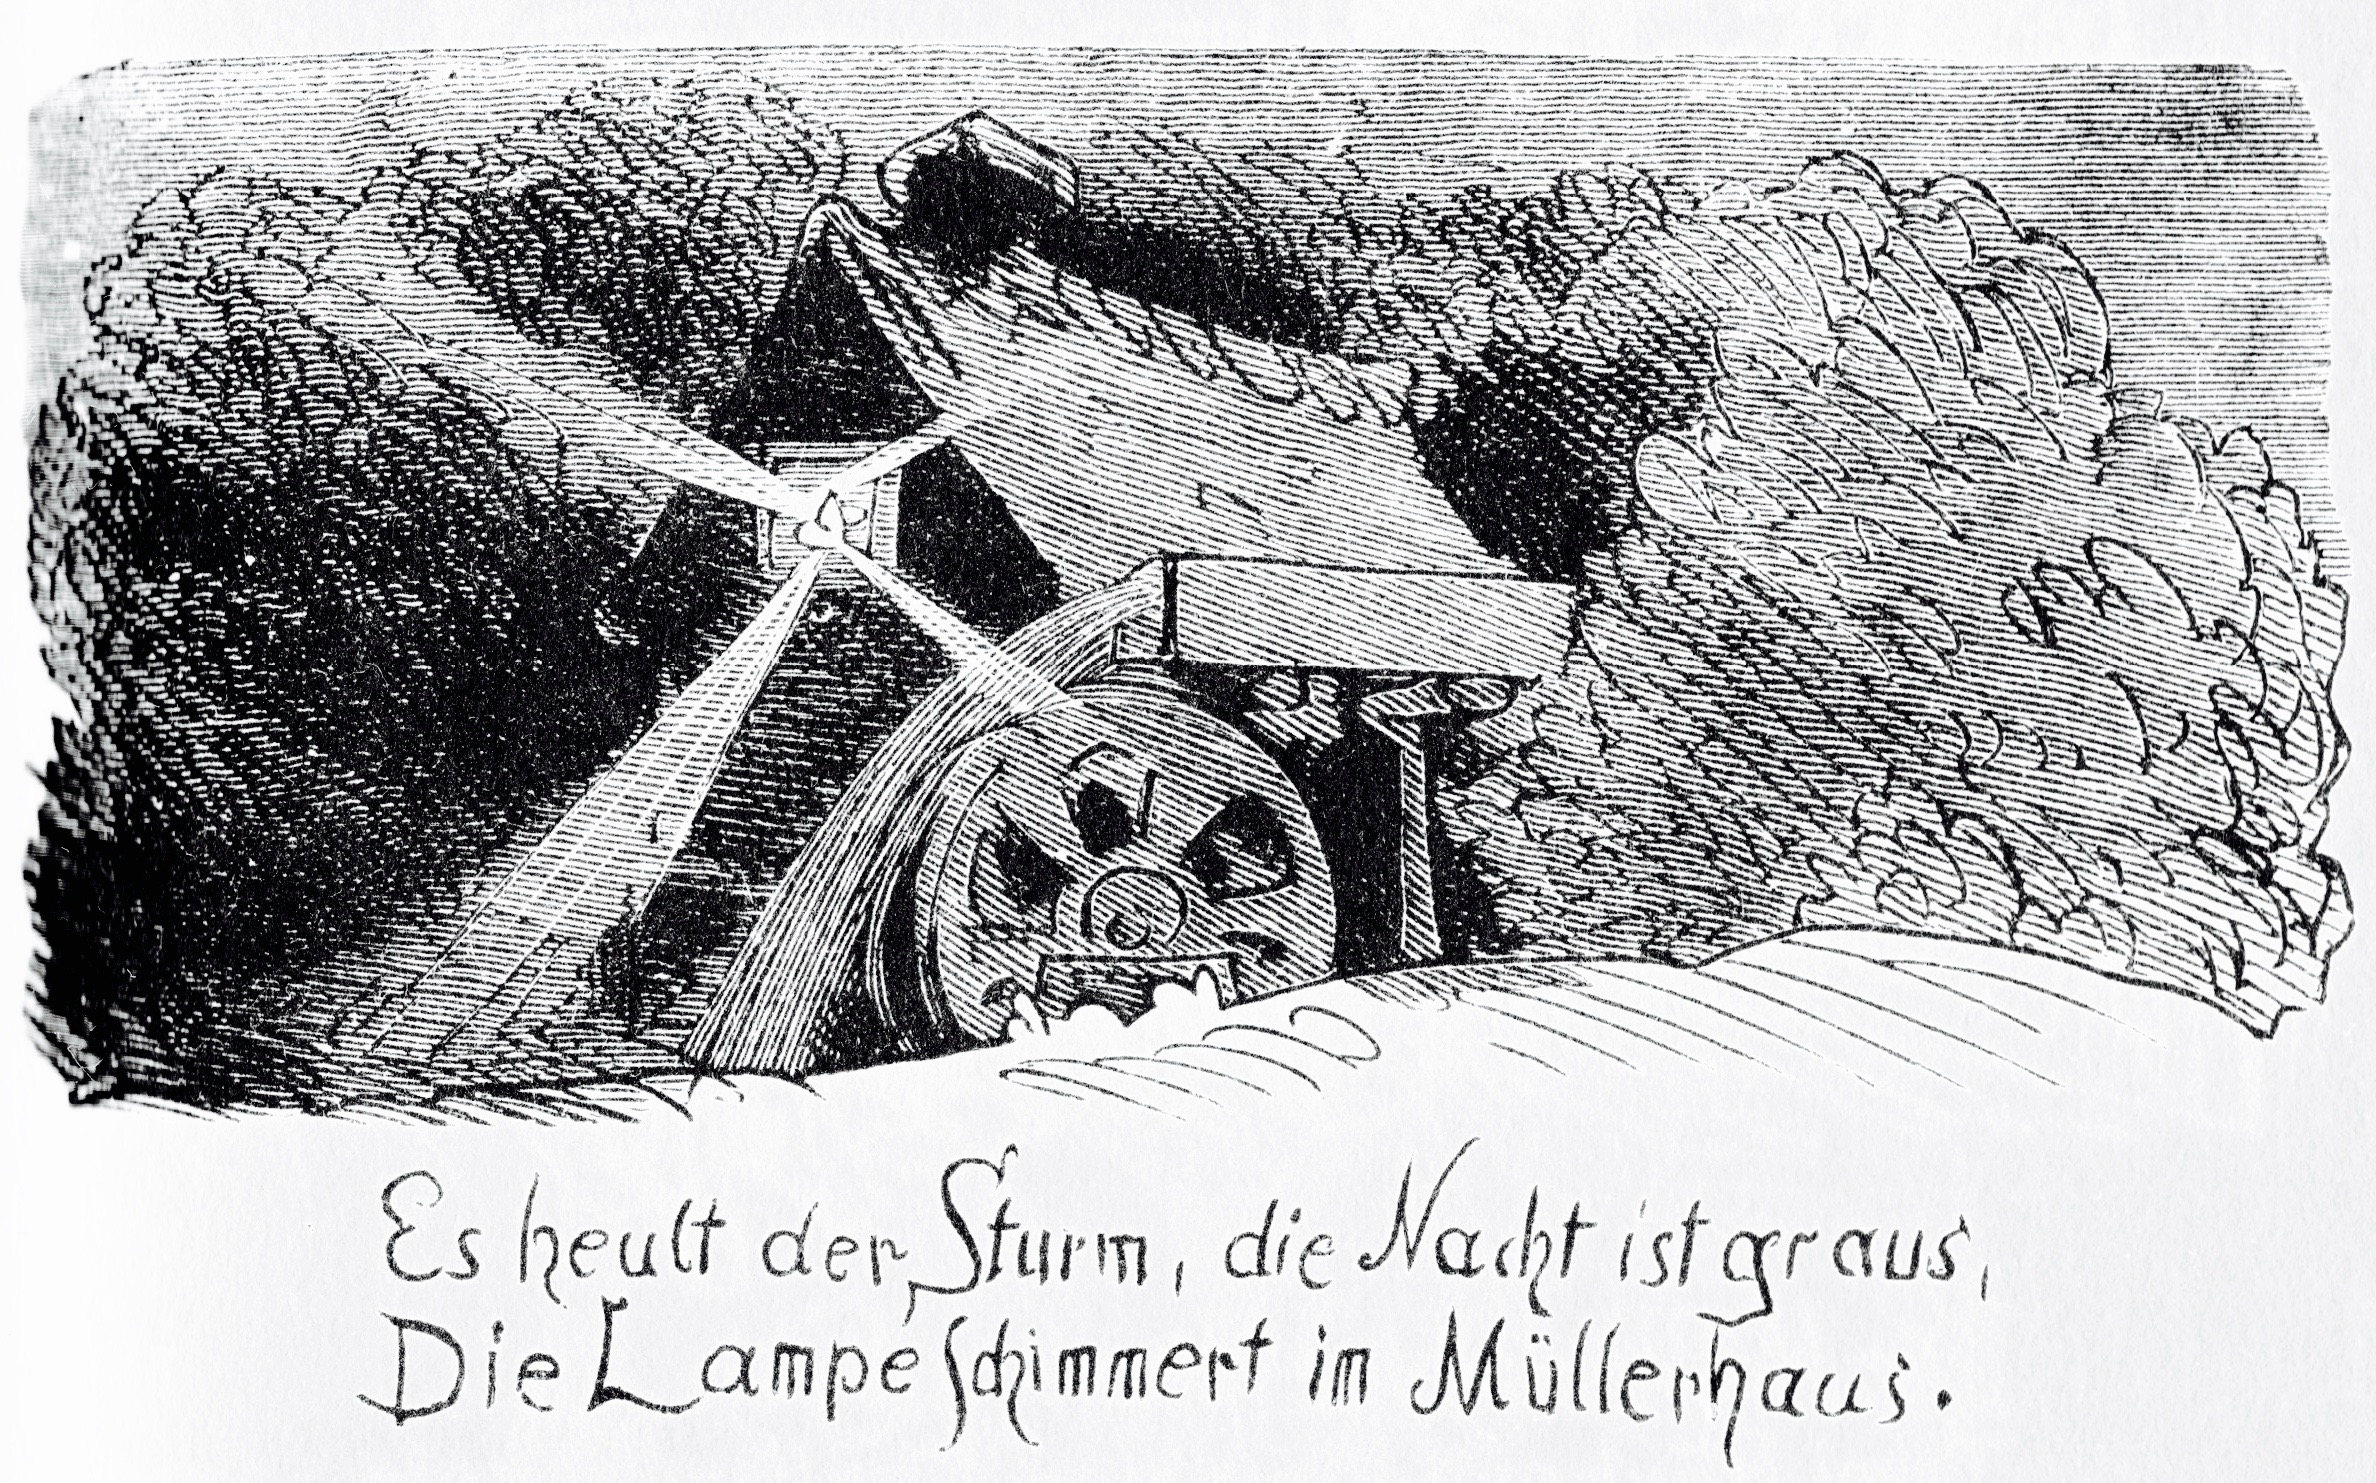 Es heult der Sturm, die Nacht ist graus,
Die Lampe schimmert im Müllerhaus.